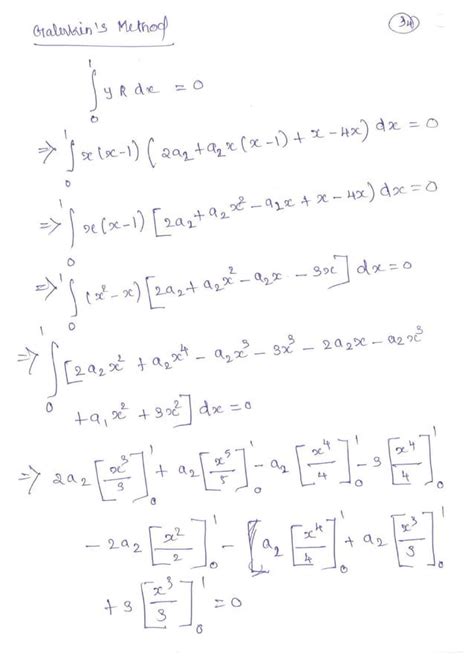 Galerkin's Method
34
∫₀¹ y R dx = 0
⇒ ∫₀¹ x(x-1) (2a₂ + a₂x(x-1) + x - 4x) dx = 0
⇒ ∫₀¹ x(x-1) [2a₂ + a₂x² - a₂x + x - 4x) dx = 0
⇒ ∫₀¹ (x²-x) [2a₂ + a₂x² - a₂x - 3x] dx = 0
⇒ ∫₀¹ [2a₂x² + a₂x⁴ - a₂x³ - 3x³ - 2a₂x - a₂x³
+ a₁x² + 3x²] dx = 0
⇒ 2a₂ [x³/3]₀¹ + a₂ [x⁵/5]₀¹ - a₂ [x⁴/4]₀¹ - 3 [x⁴/4]₀¹
- 2a₂ [x²/2]₀¹ - [a₂ [x⁴/4]₀¹ + a₂ [x³/3]₀¹
+ 3 [x³/3]₀¹ = 0